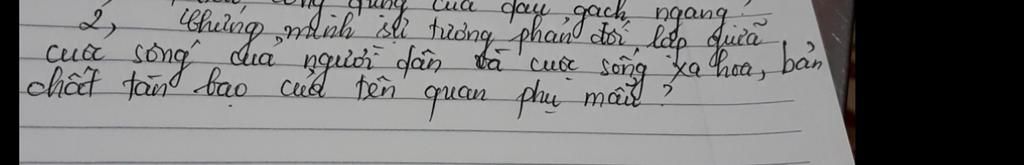 công dụng của dấu gạch ngang.
2, Chứng minh sự tương phản đối lập giữa
cuộc sống của người dân và cuộc sống xa hoa, bản
chất tàn bạo của tên quan phụ mẫu?